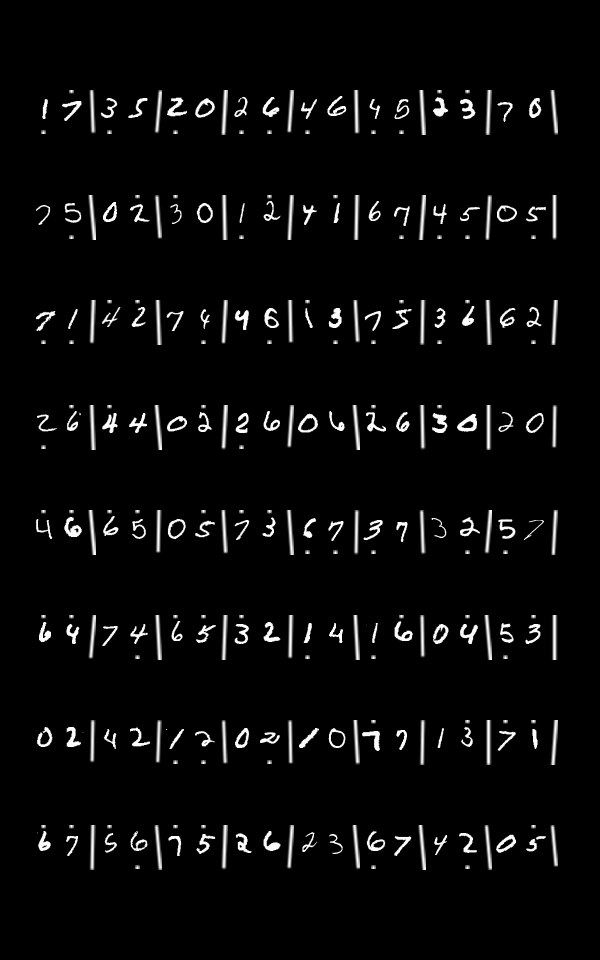 1 7 | 3 5 | 2 0 | 2 6 | 4 6 | 4 5 | 2 3 | 7 0 |
7 5 | 0 2 | 3 0 | 1 2 | 4 1 | 6 7 | 4 5 | 0 5 |
7 1 | 4 2 | 7 4 | 4 6 | 1 3 | 7 5 | 3 6 | 6 2 |
2 6 | 4 4 | 0 2 | 2 6 | 0 6 | 2 6 | 3 0 | 2 0 |
4 6 | 6 5 | 0 5 | 7 3 | 6 7 | 3 7 | 3 2 | 5 7 |
6 4 | 7 4 | 6 5 | 3 2 | 1 4 | 1 6 | 0 4 | 5 3 |
0 2 | 4 2 | 1 2 | 0 2 | 1 0 | 7 7 | 1 3 | 7 1 |
6 7 | 5 6 | 7 5 | 2 6 | 2 3 | 6 7 | 4 2 | 0 5 |